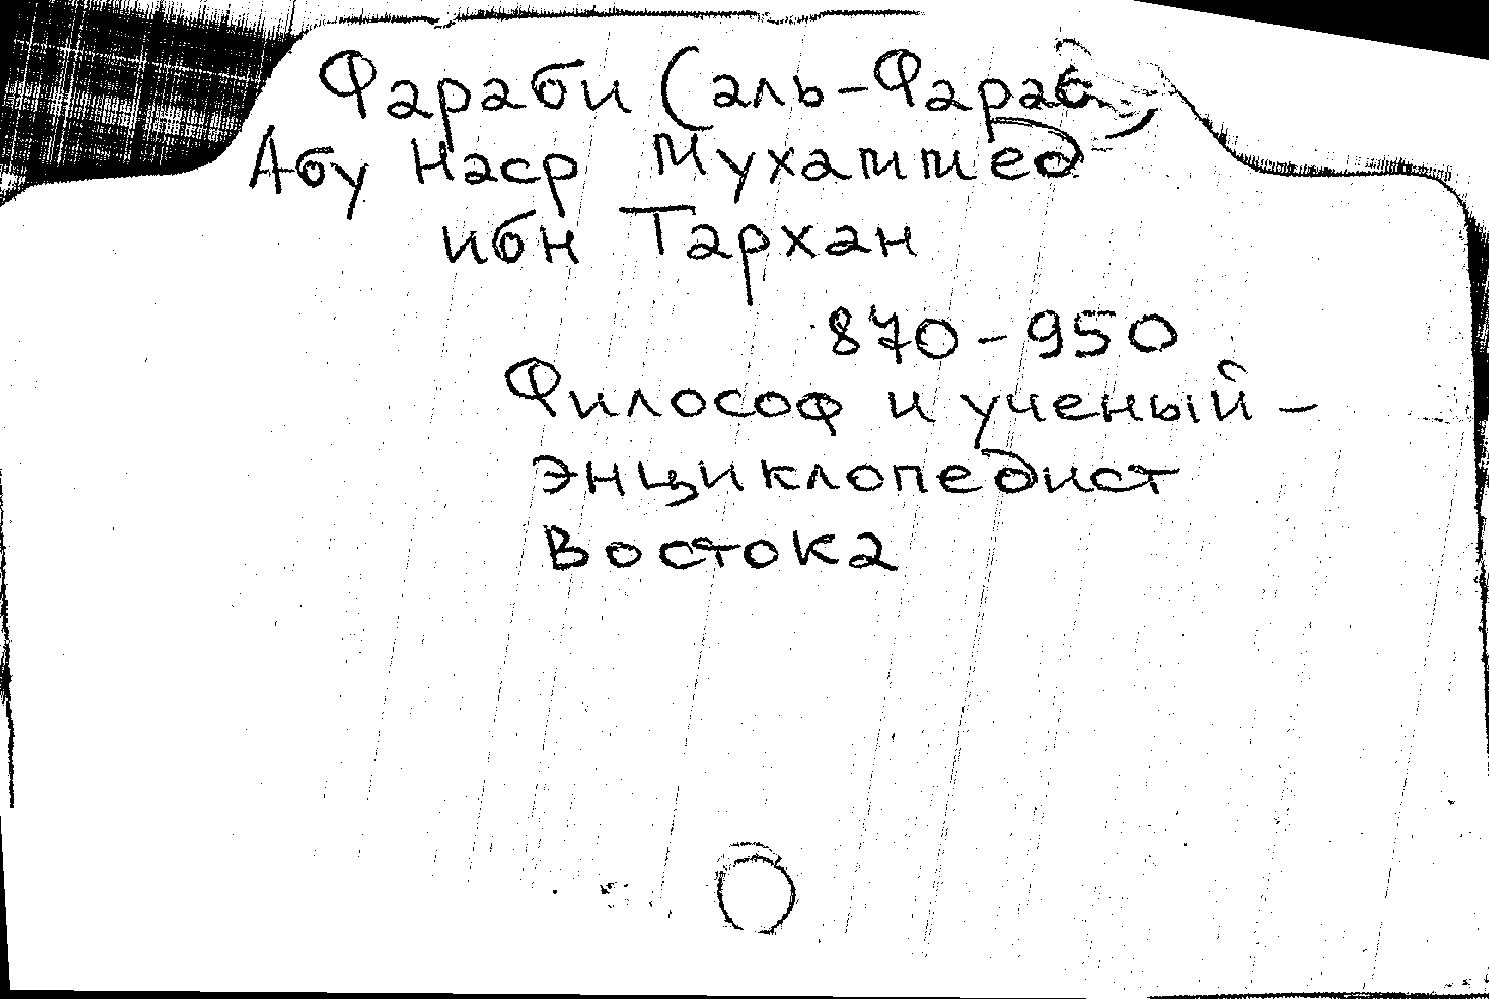 Фараби (аль-Фараб)
Абу Наср Мухаммед
ибн Тархан
870-950
Философ и ученый -
энциклопедист
Востока